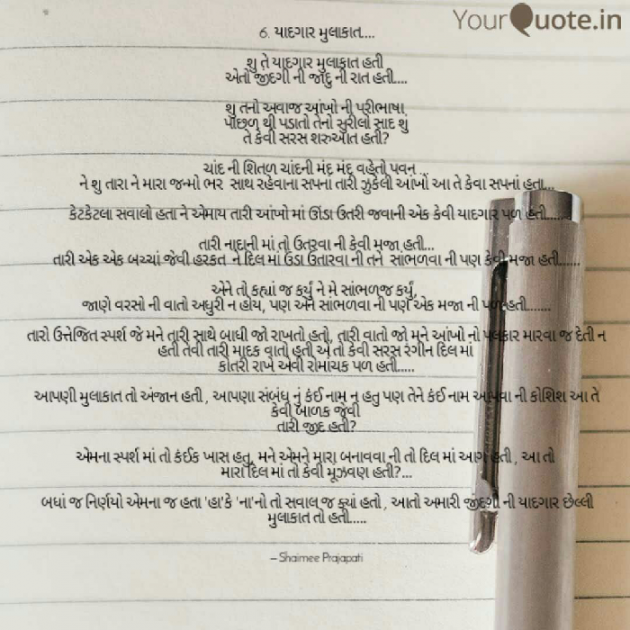 YourQuote.in
6. યાદગાર મુલાકાત....
શુ તે યાદગાર મુલાકાત હતી
એતો જીદગી ની જાદુ ની રાત હતી....
શુ તનો અવાજ આંખો ની પરીભાષા,
પાછળ થી પડાતો તેનો સુરીલો સાદ શું
તે કેવી સરસ શરુઆત હતી?
ચાંદ ની શિતળ ચાંદની મંદ મંદ વહેતો પવન ..
ને શુ તારા ને મારા જન્મો ભર સાથ રહેવાના સપના તારી ઝુકેલી આંખો આ તે કેવા સપનાં હતા...
કેટકેટલા સવાલો હતા ને એમાય તારી આંખો માં ઊંડા ઉતરી જવાની એક કેવી યાદગાર પળ હતી.....
તારી નાદાની માં તો ઉતરવા ની કેવી મજા હતી...
તારી એક એક બચ્ચાં જેવી હરકત ને દિલ માં ઉંડા ઉતારવા ની તને સાંભળવા ની પણ કેવી મજા હતી......
એને તો કહ્યાં જ કર્યું ને મે સાંભળજ કર્યું,
જાણે વરસો ની વાતો અધુરી ન હોય, પણ એને સાંભળવા ની પણ એક મજા ની પળ હતી.......
તારો ઉત્તેજિત સ્પર્શ જે મને તારી સાથે બાધી જો રાખતો હતો, તારી વાતો જો મને આંખો નો પલકાર મારવા જ દેતી ન
હતી તેવી તારી માદક વાતો હતી એ તો કેવી સરસ રંગીન દિલ માં
કોતરી રાખે એવી રોમાચક પળ હતી.....
આપણી મુલાકાત તો અંજાન હતી , આપણા સંબંધ નું કંઈ નામ ન હતુ પણ તેને કંઈ નામ આપવા ની કોશિશ આ તે
કેવી બાળક જેવી
તારી જીદ હતી?
એમના સ્પર્શ માં તો કંઈક ખાસ હતુ, મને એમને મારા બનાવવા ની તો દિલ માં આગ હતી , આ તો
મારા દિલ માં તો કેવી મૂઝવણ હતી?...
બધાં જ નિર્ણયો એમના જ હતા 'હા'કે 'ના'નો તો સવાલ જ ક્યાં હતો , આતો અમારી જીંદગી ની યાદગાર છેલ્લી
મુલાકાત તો હતી.....
– Shaimee Prajapati